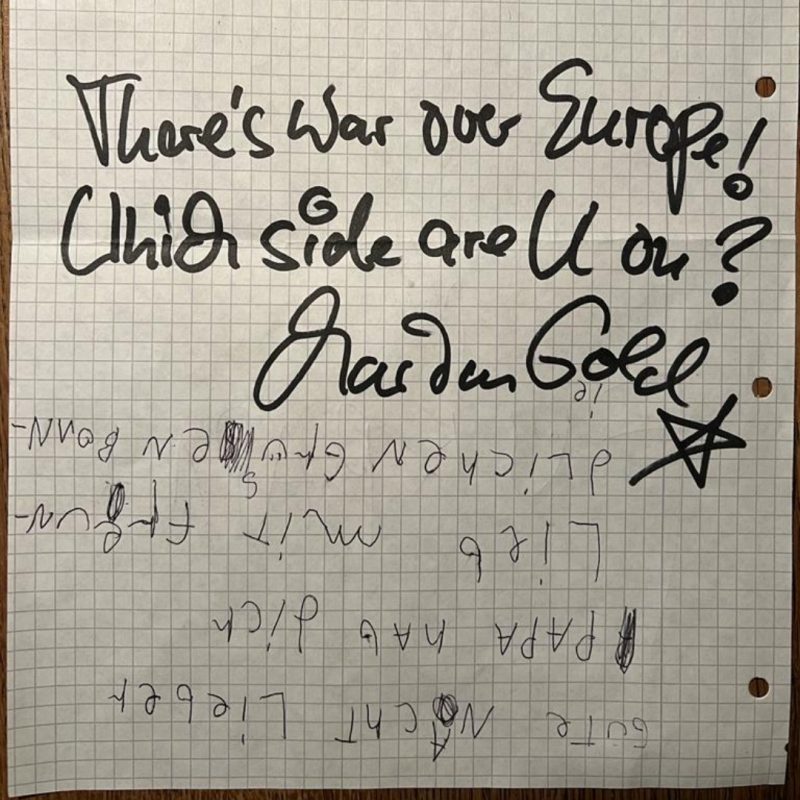 There's War over Europe!
Which side are U on?
Gold
GuTe NAchT Lieber
PAPA hAb dich
Lieb miT freun-
dLichen GrüseN Bonn-
ie